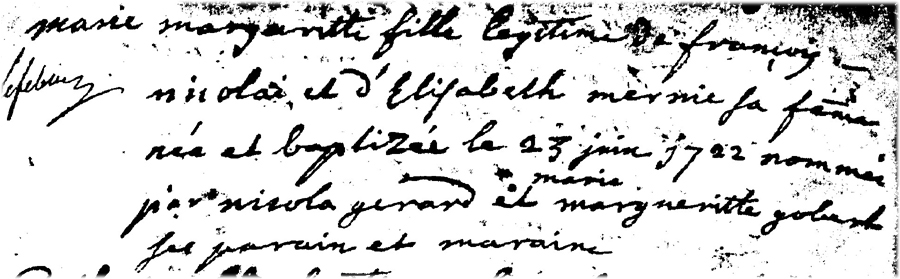 marie margueritte fille legitime de françois
lefebure
nicolai et d'Elisabeth mernie sa feme
née et baptizée le 23 juin 1722 nommée
par nicola gerard et marie margueritte gobert
ses parain et maraine